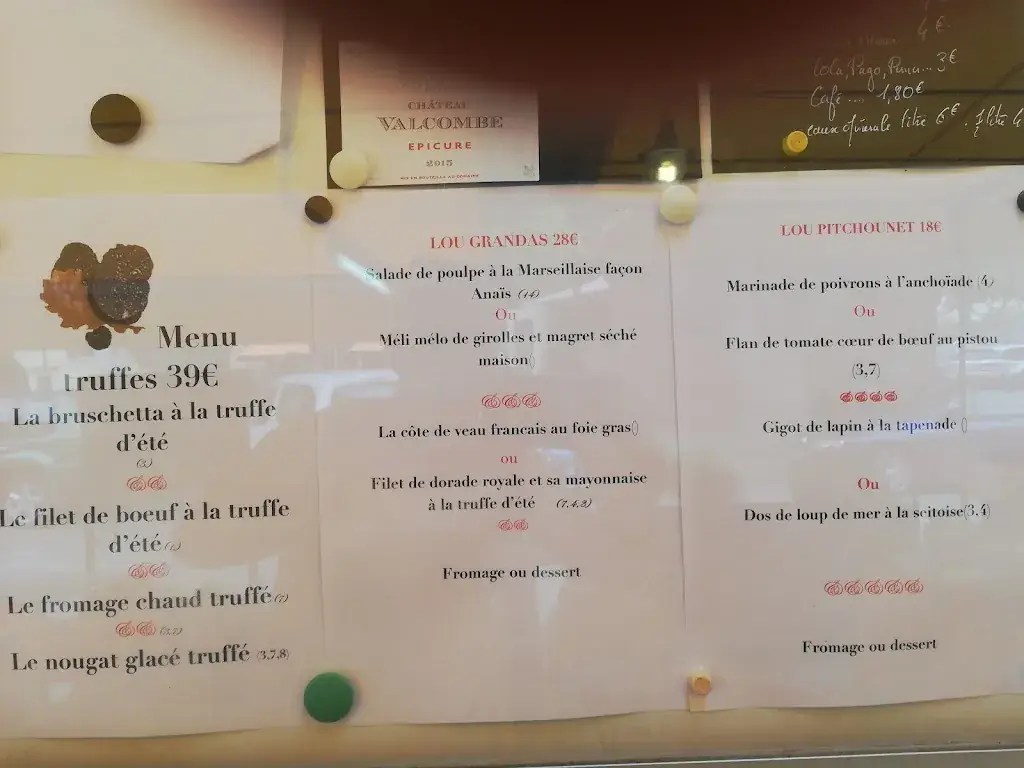 CHÂTEAU
VALCOMBE
EPICURE
2015
MIS EN BOUTEILLE AU DOMAINE
4 €
Cola, Pago, ... 3€
Café .... 1,80€
litre 6€ .
Menu
truffes 39€
La bruschetta à la truffe
d’été
Le filet de boeuf à la truffe
d’été
Le fromage chaud truffé(7)
(3,7)
Le nougat glacé truffé (3.7,8)
LOU GRANDAS 28€
Salade de poulpe à la Marseillaise façon
Anaïs (14)
Ou
Méli mélo de girolles et magret séché
maison()
La côte de veau francais au foie gras()
ou
Filet de dorade royale et sa mayonnaise
à la truffe d’été (7,4,3)
Fromage ou dessert
LOU PITCHOUNET 18€
Marinade de poivrons à l’anchoïade (4)
Ou
Flan de tomate cœur de bœuf au pistou
(3,7)
Gigot de lapin à la tapenade ()
Ou
Dos de loup de mer à la seitoise(3.4)
Fromage ou dessert